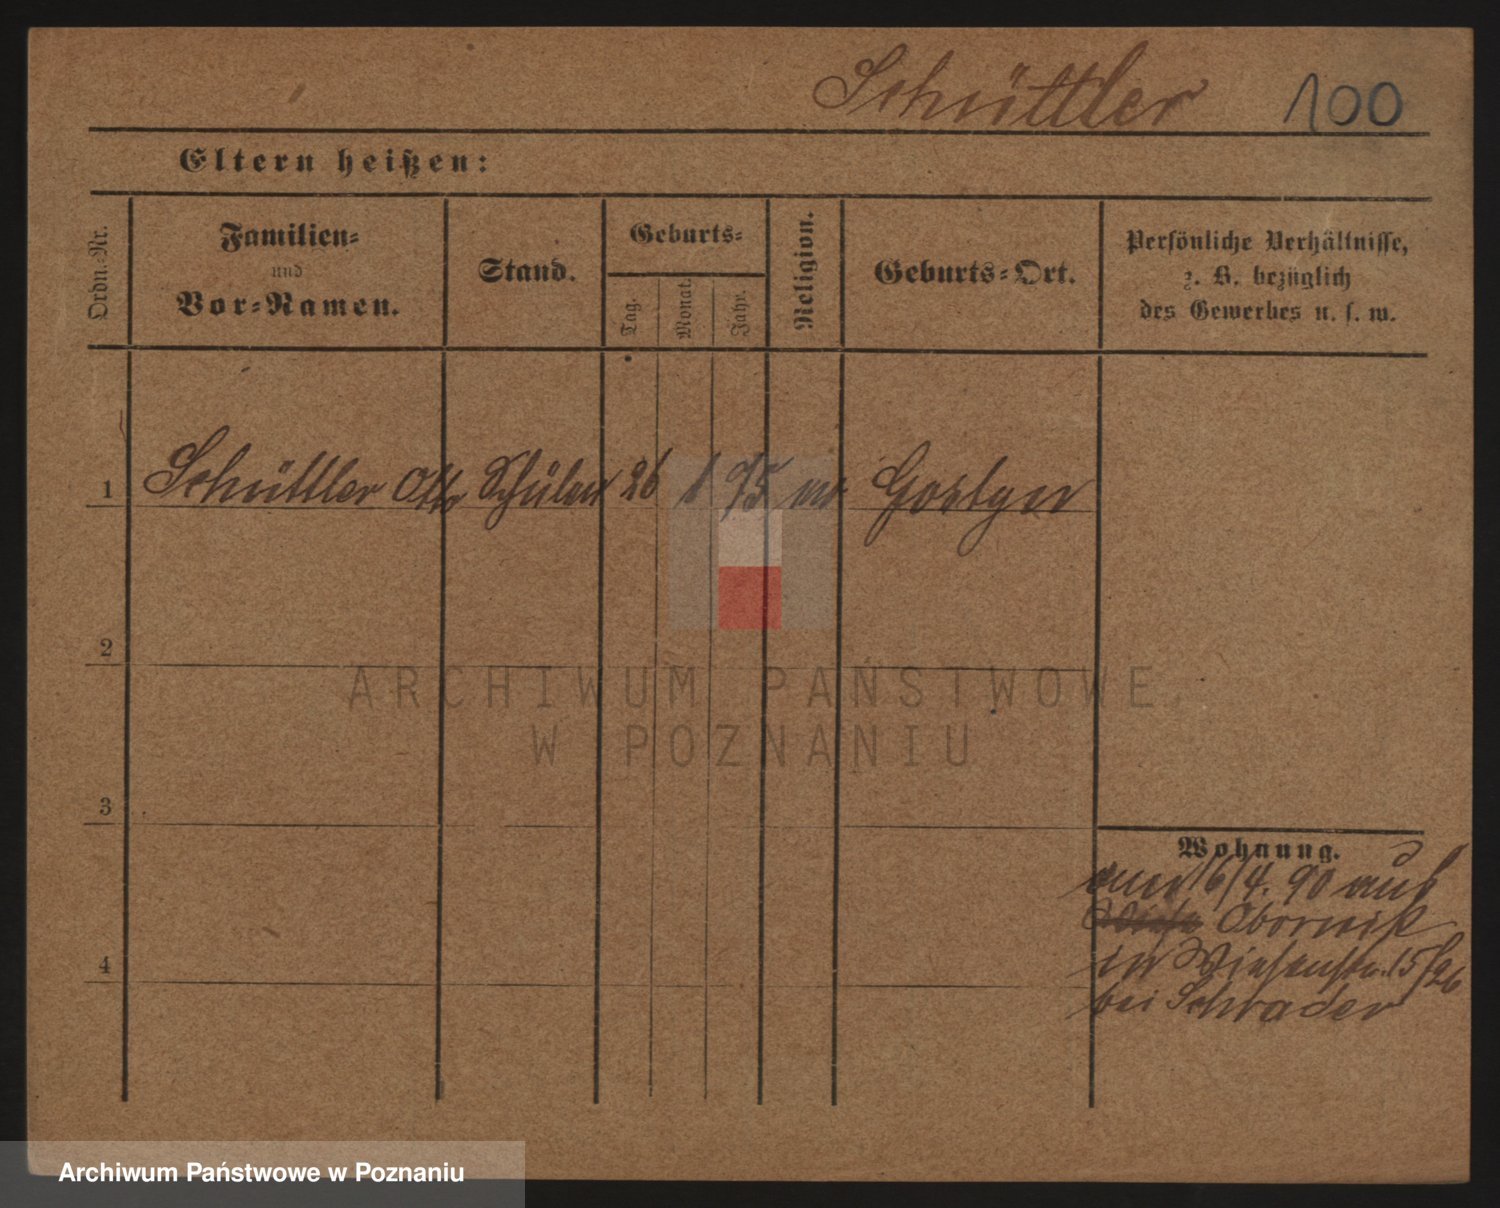 Schüttler 100
Eltern heißen:
Ordn.-Nr.
Familien-
und
Vor-Namen.
Stand.
Geburts-
Tag.
Monat.
Jahr.
Religion.
Geburts-Ort.
Persönliche Verhältnisse,
z. B. bezüglich
des Gewerbes u. s. w.
1 Schüttler Otto Schüler 26 75
2
ARCHIWUM PAŃSTWOWE
W POZNANIU
3
Wohnung.
16/4. 90 aus
Obornik
in Wiesenstr. 15/26
bei Schrader
4
Archiwum Państwowe w Poznaniu